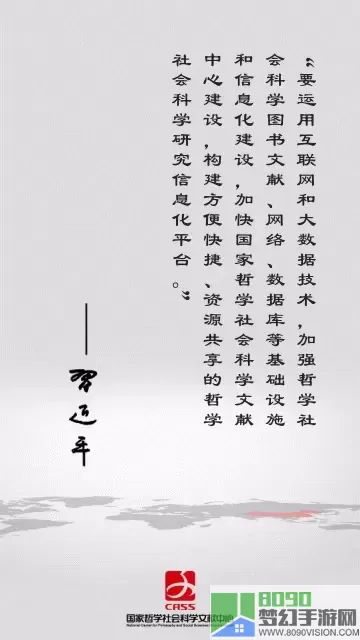 “要运用互联网和大数据技术，加强哲学社
会科学图书文献、网络、数据库等基础设施
和信息化建设，加快国家哲学社会科学文献
中心建设，构建方便快捷、资源共享的哲学
社会科学研究信息化平台。”
——习近平
CASS
国家哲学社会科学文献中心
National Center for Philosophy and Social Sciences Documentation
8090
梦幻手游网
www.8090vision.com